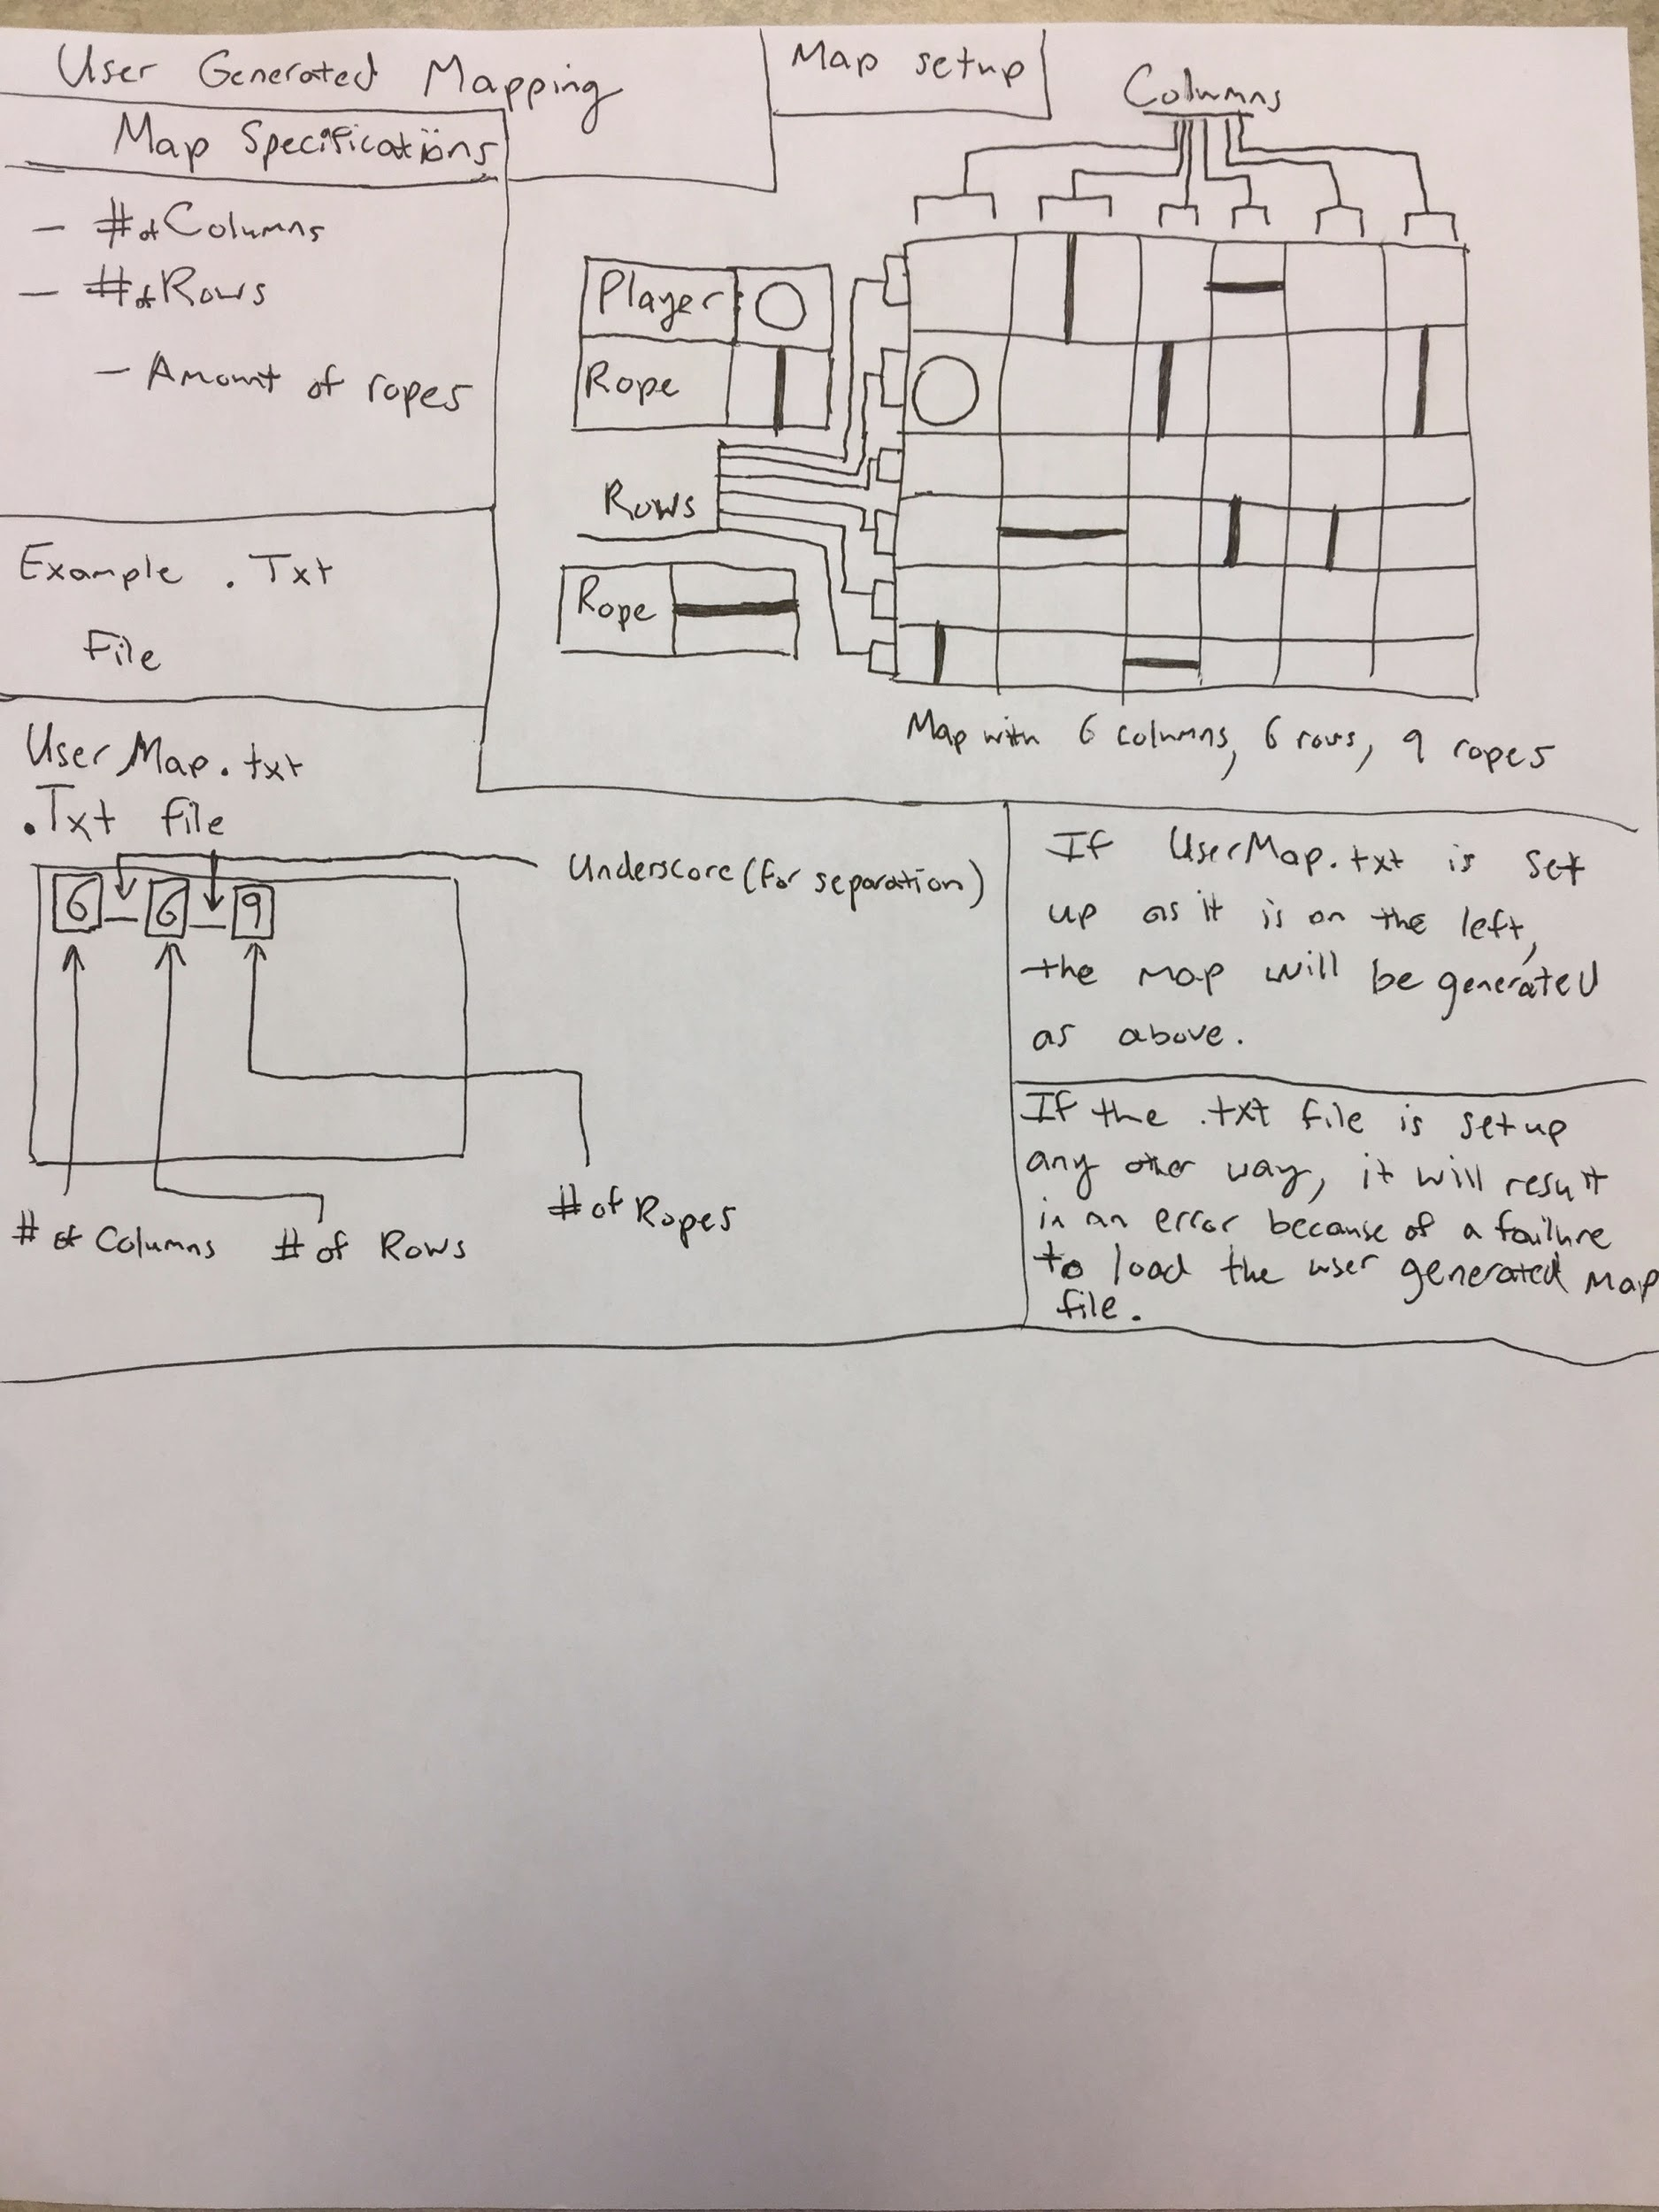 User Generated Mapping
Map Specifications
- # of Columns
- # of Rows
- Amount of ropes
Map setup
Columns
Player:
Rope
Rows
Rope
Map with 6 columns, 6 rows, 9 ropes
Example .Txt
File
UserMap.txt
.Txt file
6_6_9
Underscore (for separation)
# of Columns
# of Rows
# of Ropes
If UserMap.txt is set
up as it is on the left,
the map will be generated
as above.
If the .txt file is setup
any other way, it will result
in an error because of a failure
to load the user generated map
file.